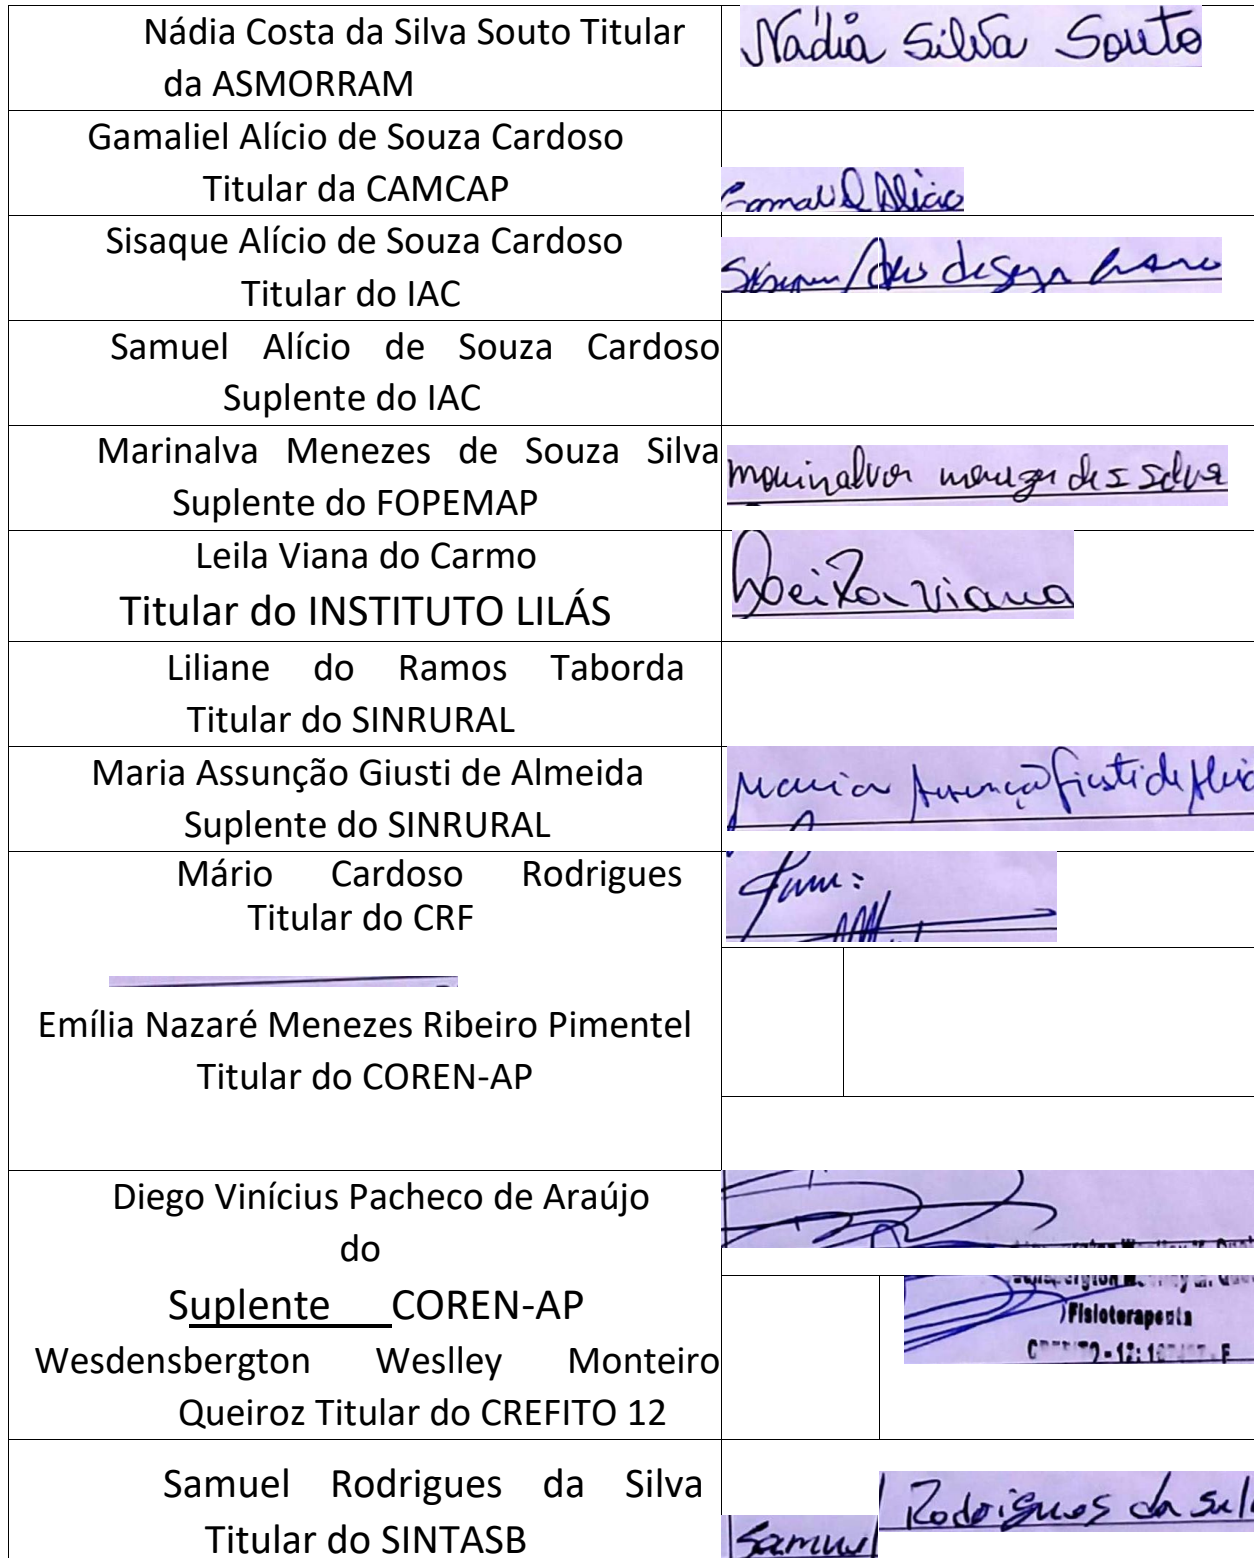 Nádia Costa da Silva Souto Titular
da ASMORRAM
Nádia Silva Souto
Gamaliel Alício de Souza Cardoso
Titular da CAMCAP
Gamaliel Alício
Sisaque Alício de Souza Cardoso
Titular do IAC
Samuel Alício de Souza Cardoso
Suplente do IAC
Marinalva Menezes de Souza Silva
Suplente do FOPEMAP
marinalva menezes de S Silva
Leila Viana do Carmo
Titular do INSTITUTO LILÁS
Leila Viana
Liliane do Ramos Taborda
Titular do SINRURAL
Maria Assunção Giusti de Almeida
Suplente do SINRURAL
Maria Assunção Giusti de Almeid
Mário Cardoso Rodrigues
Titular do CRF
Emília Nazaré Menezes Ribeiro Pimentel
Titular do COREN-AP
Diego Vinícius Pacheco de Araújo
do
Suplente COREN-AP
Wesdensbergton Weslley Monteiro
Queiroz Titular do CREFITO 12
Fisioterapeuta
Samuel Rodrigues da Silva
Titular do SINTASB
Samuel Rodrigues da Sil